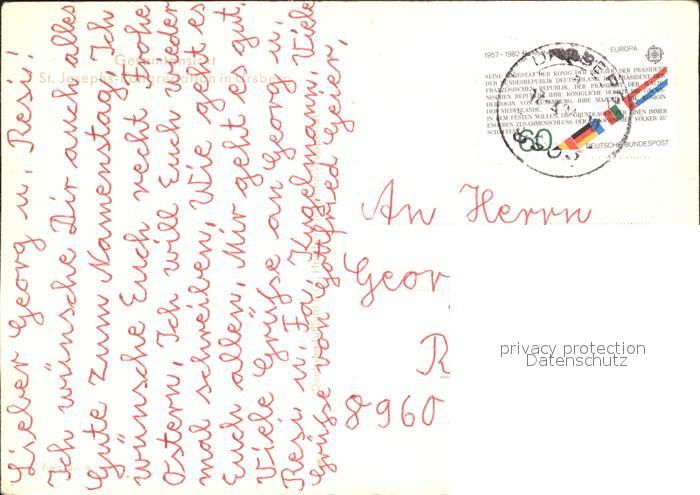 Lieber Georg u. Resi!
Ich wünsche Dir auch alles
Gute zum Namenstag. Ich
wünsche Euch recht frohe
Ostern. Ich will Euch wieder
mal schreiben. Wie geht es
Euch allen. Mir geht es gut.
Viele Grüße an Georg u.
Resi u. Fa. Kugelmann. Viele
Grüße von Gottfried Geier.
Gesamtanstalt
St. Josephs-Kongregation in Ursberg
1957-1982
EUROPA
SEINE MAJESTÄT DER KÖNIG DER BELGIER, DER PRÄSIDENT
DER BUNDESREPUBLIK DEUTSCHLAND, DER PRÄSIDENT DER
FRANZÖSISCHEN REPUBLIK, DER PRÄSIDENT DER ITALIE-
NISCHEN REPUBLIK, IHRE KÖNIGLICHE HOHEIT DIE GROSS-
HERZOGIN VON LUXEMBURG, IHRE MAJESTÄT DIE KÖNIGIN
DER NIEDERLANDE,
IN DEM FESTEN WILLEN, DIE GRUNDLAGEN FÜR EINEN IMMER
ENGEREN ZUSAMMENSCHLUSS DER EUROPÄISCHEN VÖLKER ZU
SCHAFFEN
60
DEUTSCHE BUNDESPOST
An Herrn
Geor
R
8960
privacy protection
Datenschutz